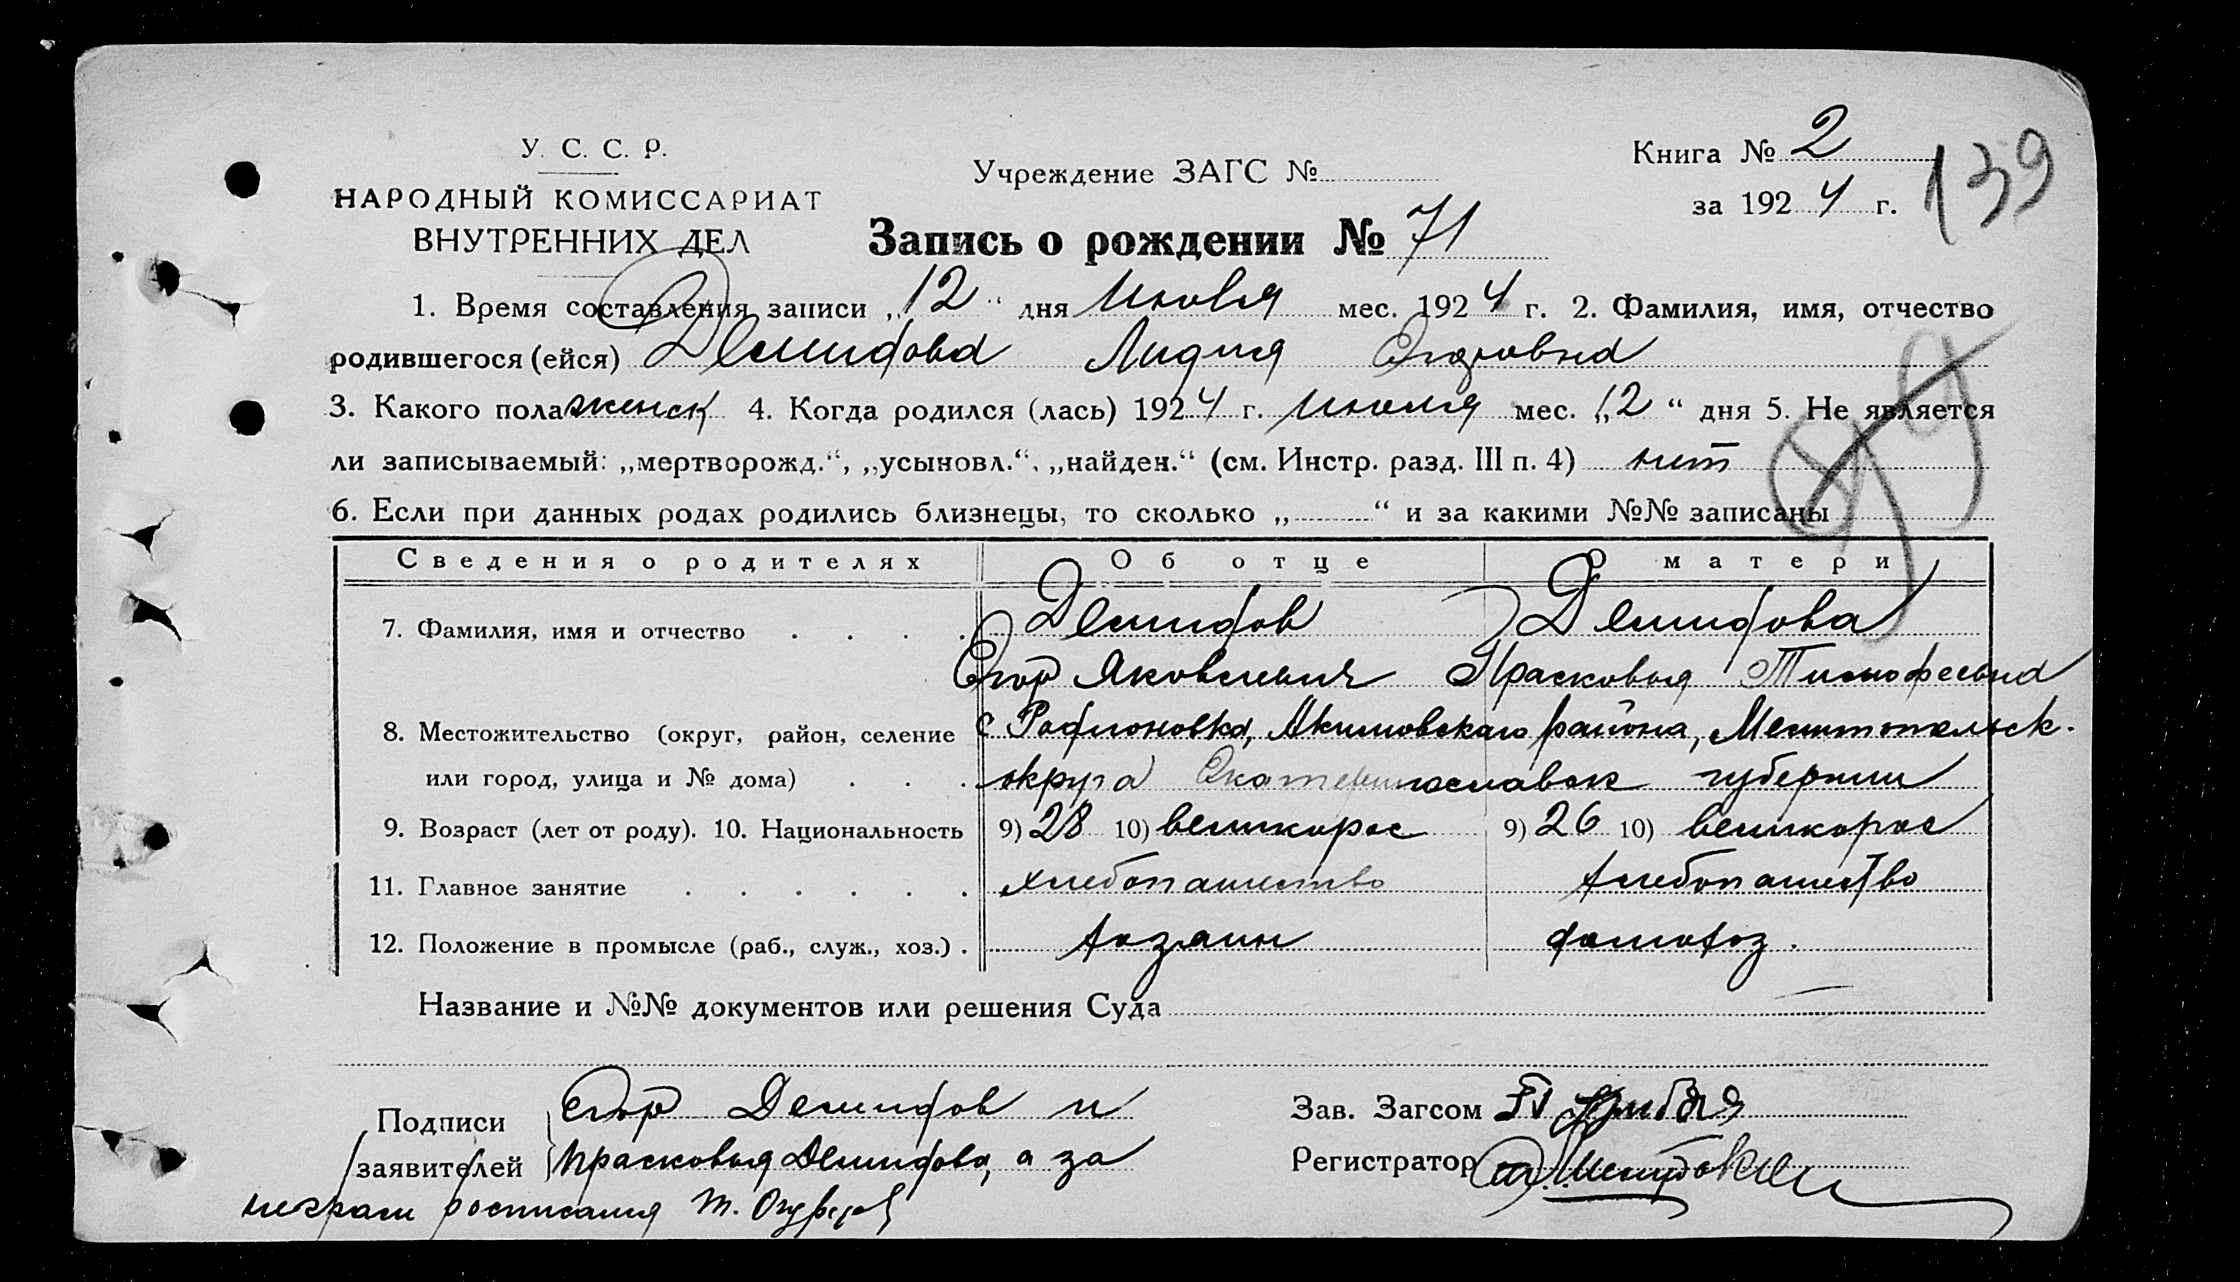 У. С. С. Р.
НАРОДНЫЙ КОМИССАРИАТ
ВНУТРЕННИХ ДЕЛ
Учреждение ЗАГС №
Книга № 2
за 1924 г.
139
Запись о рождении № 71
1. Время составления записи „12“ дня Июля мес. 1924 г. 2. Фамилия, имя, отчество
родившегося (ейся) Демидова Лидия Егоровна
3. Какого пола женск 4. Когда родился (лась) 1924 г. июля мес. „2“ дня 5. Не является
ли записываемый: „мертворожд.“, „усыновл.“, „найден.“ (см. Инстр. разд. III п. 4) нет
6. Если при данных родах родились близнецы, то сколько „ “ и за какими №№ записаны
Сведения о родителях Об отце О матери
7. Фамилия, имя и отчество . . . . Демидов Демидова
Егор Яковлевич Прасковья Тимофеевна
8. Местожительство (округ, район, селение с Родионовка, Акимовскаго района, Мелитопольск.
или город, улица и № дома) . . . округа Екатеринославск губернии
9. Возраст (лет от роду). 10. Национальность 9) 28 10) великорос 9) 26 10) великорос
11. Главное занятие . . . . . . хлебопашество хлебопашество
12. Положение в промысле (раб., служ., хоз.) . хозяин домохоз.
Название и №№ документов или решения Суда
Подписи Егор Демидов и
заявителей Прасковья Демидова, а за
неграм росписался Т.
Зав. Загсом
Регистратор